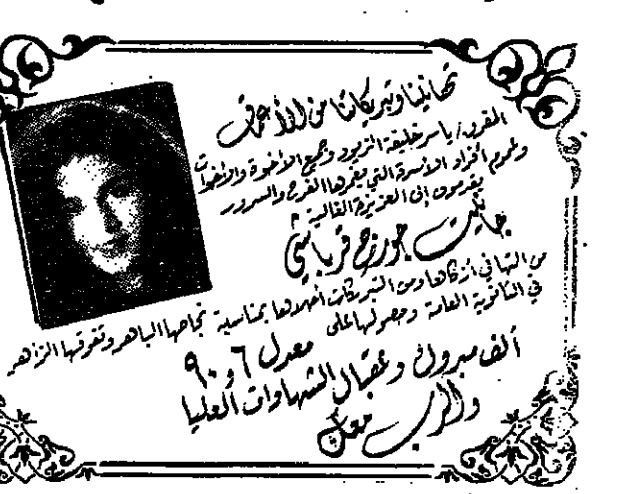 تهانينا وتبريكاتنا من الأعماق
المقرىء / ياسر خليفة الزيود وجميع الأخوة والأخوات
وعموم أفراد الأسرة التي يغمرها الفرح والسرور
يقدمون إلى العزيزة الغالية
جانيت جورج قرباشي
من التهاني أزكاها ومن التبريكات أحلاها بمناسبة نجاحها الباهر وتفوقها الزاهر
في الثانوية العامة وحصولها على معدل ٩٠٫٦
ألف مبروك وعقبال الشهادات العليا
والرب معك